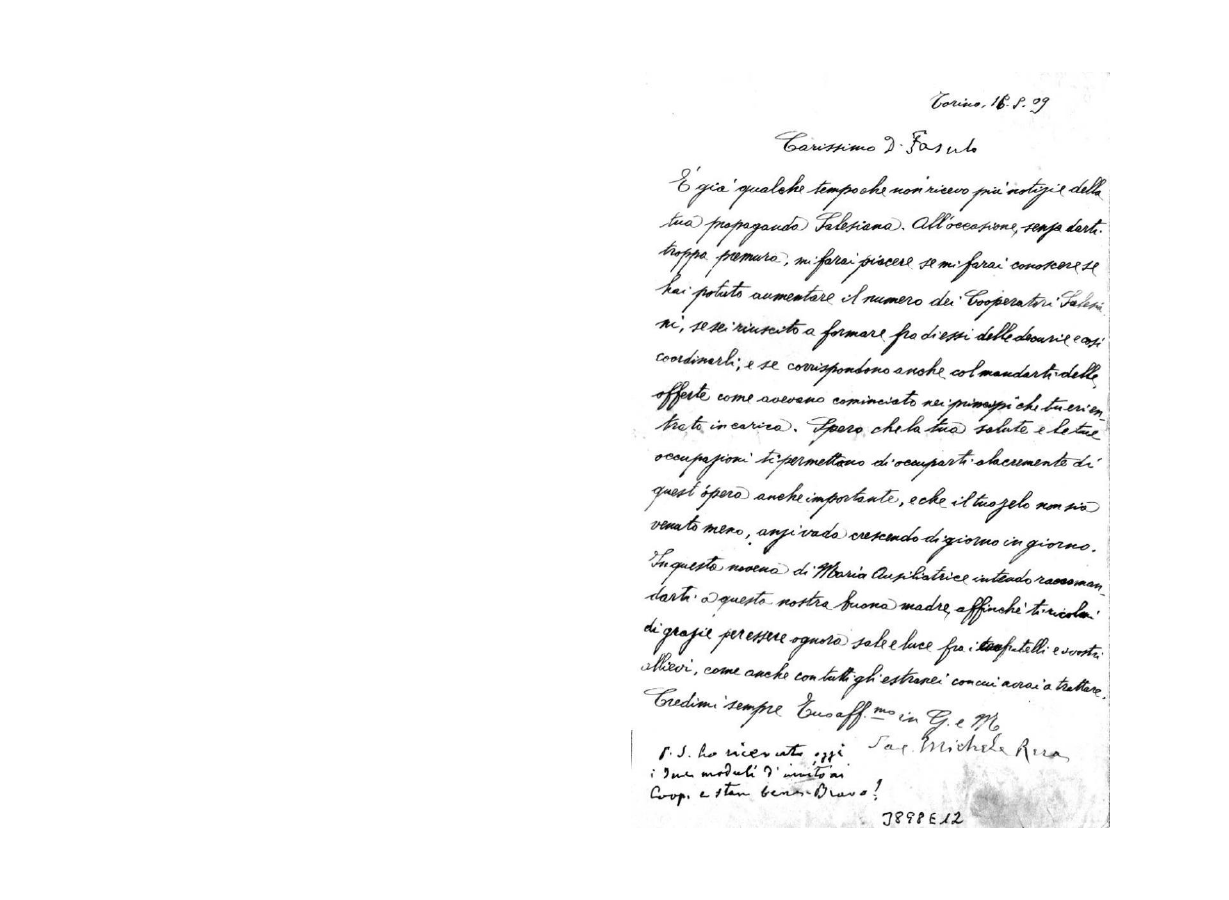 Torino, 16.5.09
Carissimo D. Fasulo
È già qualche tempo che non ricevo più notizie della
tua propaganda Salesiana. All'occasione, senza darti
troppa premura, mi farai piacere se mi farai conoscere se
hai potuto aumentare il numero dei Cooperatori Salesia
ni, se sei riuscito a formare fra di essi delle decurie e così
coordinarli; e se corrispondono anche col mandarti delle
offerte come avevano cominciato nei principi che tu eri en-
trato in carica. Spero che la tua salute e le tue
occupazioni ti permettano di occuparti alacremente di
quest'opera anche importante, e che il tuo zelo non sia
venuto meno, anzi vada crescendo di giorno in giorno.
In questa novena di Maria Ausiliatrice intendo raccoman-
darti a questa nostra buona madre, affinché ti ricolmi
di grazie per essere ognora sale e luce fra i confratelli e vostri
allievi, come anche con tutti gli estranei con cui avrai a trattare.
Credimi sempre Tuo aff.mo in G. e M
Sac. Michele Rua
P.S. Ho ricevuto oggi
i due moduli d'invito ai
Coop. e stan bene. Bravo!
3898E12